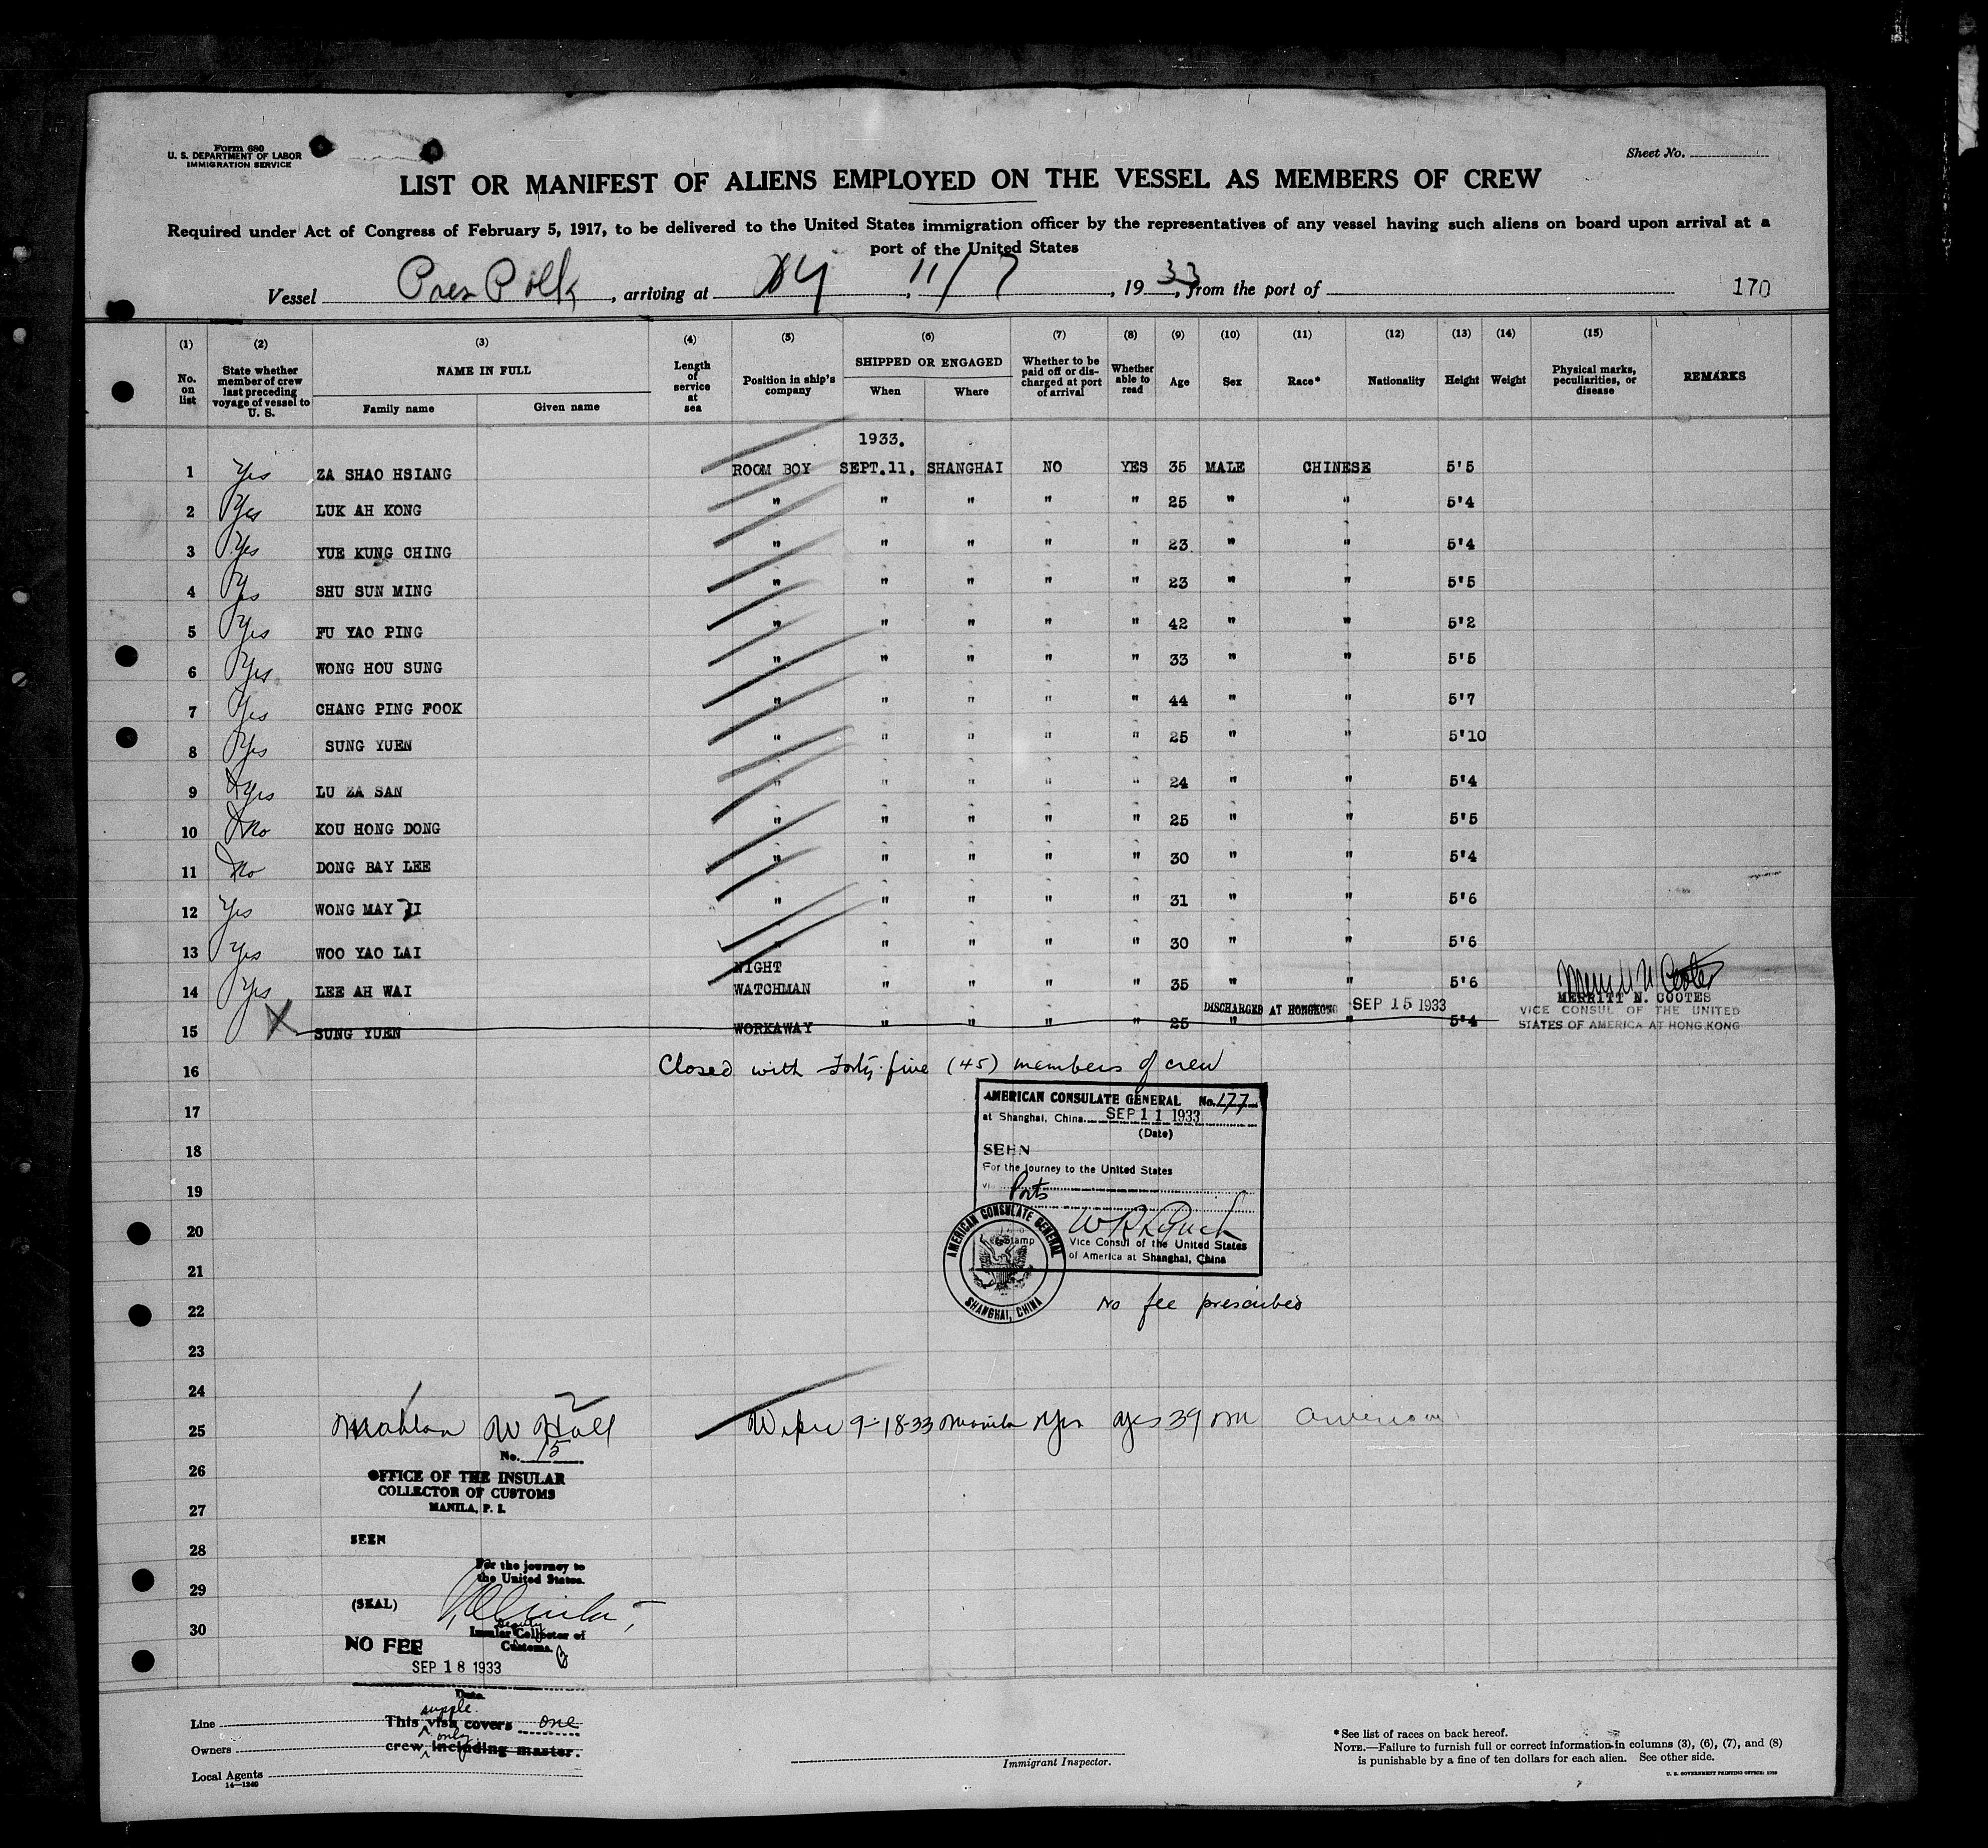 Form 680
U. S. DEPARTMENT OF LABOR
IMMIGRATION SERVICE
Sheet No.
LIST OR MANIFEST OF ALIENS EMPLOYED ON THE VESSEL AS MEMBERS OF CREW
Required under Act of Congress of February 5, 1917, to be delivered to the United States immigration officer by the representatives of any vessel having such aliens on board upon arrival at a
port of the United States
Vessel Pres Polk, arriving at NY, 11/7, 1933, from the port of 170
(1) (2) (3) (4) (5) (6) (7) (8) (9) (10) (11) (12) (13) (14) (15)
No. on list
State whether member of crew last preceding voyage of vessel to U. S.
NAME IN FULL
Family name Given name
Length of service at sea
Position in ship's company
SHIPPED OR ENGAGED
When Where
Whether to be paid off or discharged at port of arrival
Whether able to read
Age
Sex
Race*
Nationality
Height
Weight
Physical marks, peculiarities, or disease
REMARKS
1933.
1 Yes ZA SHAO HSIANG ROOM BOY SEPT.11. SHANGHAI NO YES 35 MALE CHINESE 5'5
2 Yes LUK AH KONG " " " " " 25 " " 5'4
3 Yes YUE KUNG CHING " " " " " 23 " " 5'4
4 Yes SHU SUN MING " " " " " 23 " " 5'5
5 Yes FU YAO PING " " " " " 42 " " 5'2
6 Yes WONG HOU SUNG " " " " " 33 " " 5'5
7 Yes CHANG PING FOOK " " " " " 44 " " 5'7
8 Yes SUNG YUEN " " " " " 25 " " 5'10
9 Yes LU ZA SAN " " " " " 24 " " 5'4
10 No KOU HONG DONG " " " " " 25 " " 5'5
11 No DONG BAY LEE " " " " " 30 " " 5'4
12 Yes WONG MAY " " " " " 31 " " 5'6
13 Yes WOO YAO LAI " " " " " 30 " " 5'6
14 Yes LEE AH WAI NIGHT WATCHMAN " " " " 35 " " 5'6
DISCHARGED AT HONGKONG SEP 15 1933
MERRITT N. COOTES
VICE CONSUL OF THE UNITED
STATES OF AMERICA AT HONG KONG
15 X SUNG YUEN WORKAWAY " " " " 25 " " 5'4
16 Closed with Forty-five (45) members of crew
17
18
19
20
21
22
23
24
AMERICAN CONSULATE GENERAL No. 177
at Shanghai, China SEP 11 1933
(Date)
SEEN
For the journey to the United States
via Ports
Vice Consul of the United States
of America at Shanghai, China
AMERICAN CONSULATE GENERAL
SHANGHAI, CHINA
No fee prescribed
1 2
25 Mahlon W Hall Wiper 9-18-33 Manila Yes Yes 39 m American
26
27
28
29
30
No. 15
OFFICE OF THE INSULAR
COLLECTOR OF CUSTOMS
MANILA, P. I.
SEEN
For the journey to
the United States.
(SEAL)
Deputy
Insular Collector of
Customs.
NO FEE
SEP 18 1933
Date.
supple.
This visa covers one
only
crew including master.
Line
Owners
Local Agents
14—1240
Immigrant Inspector.
*See list of races on back hereof.
NOTE.—Failure to furnish full or correct information in columns (3), (6), (7), and (8)
is punishable by a fine of ten dollars for each alien. See other side.